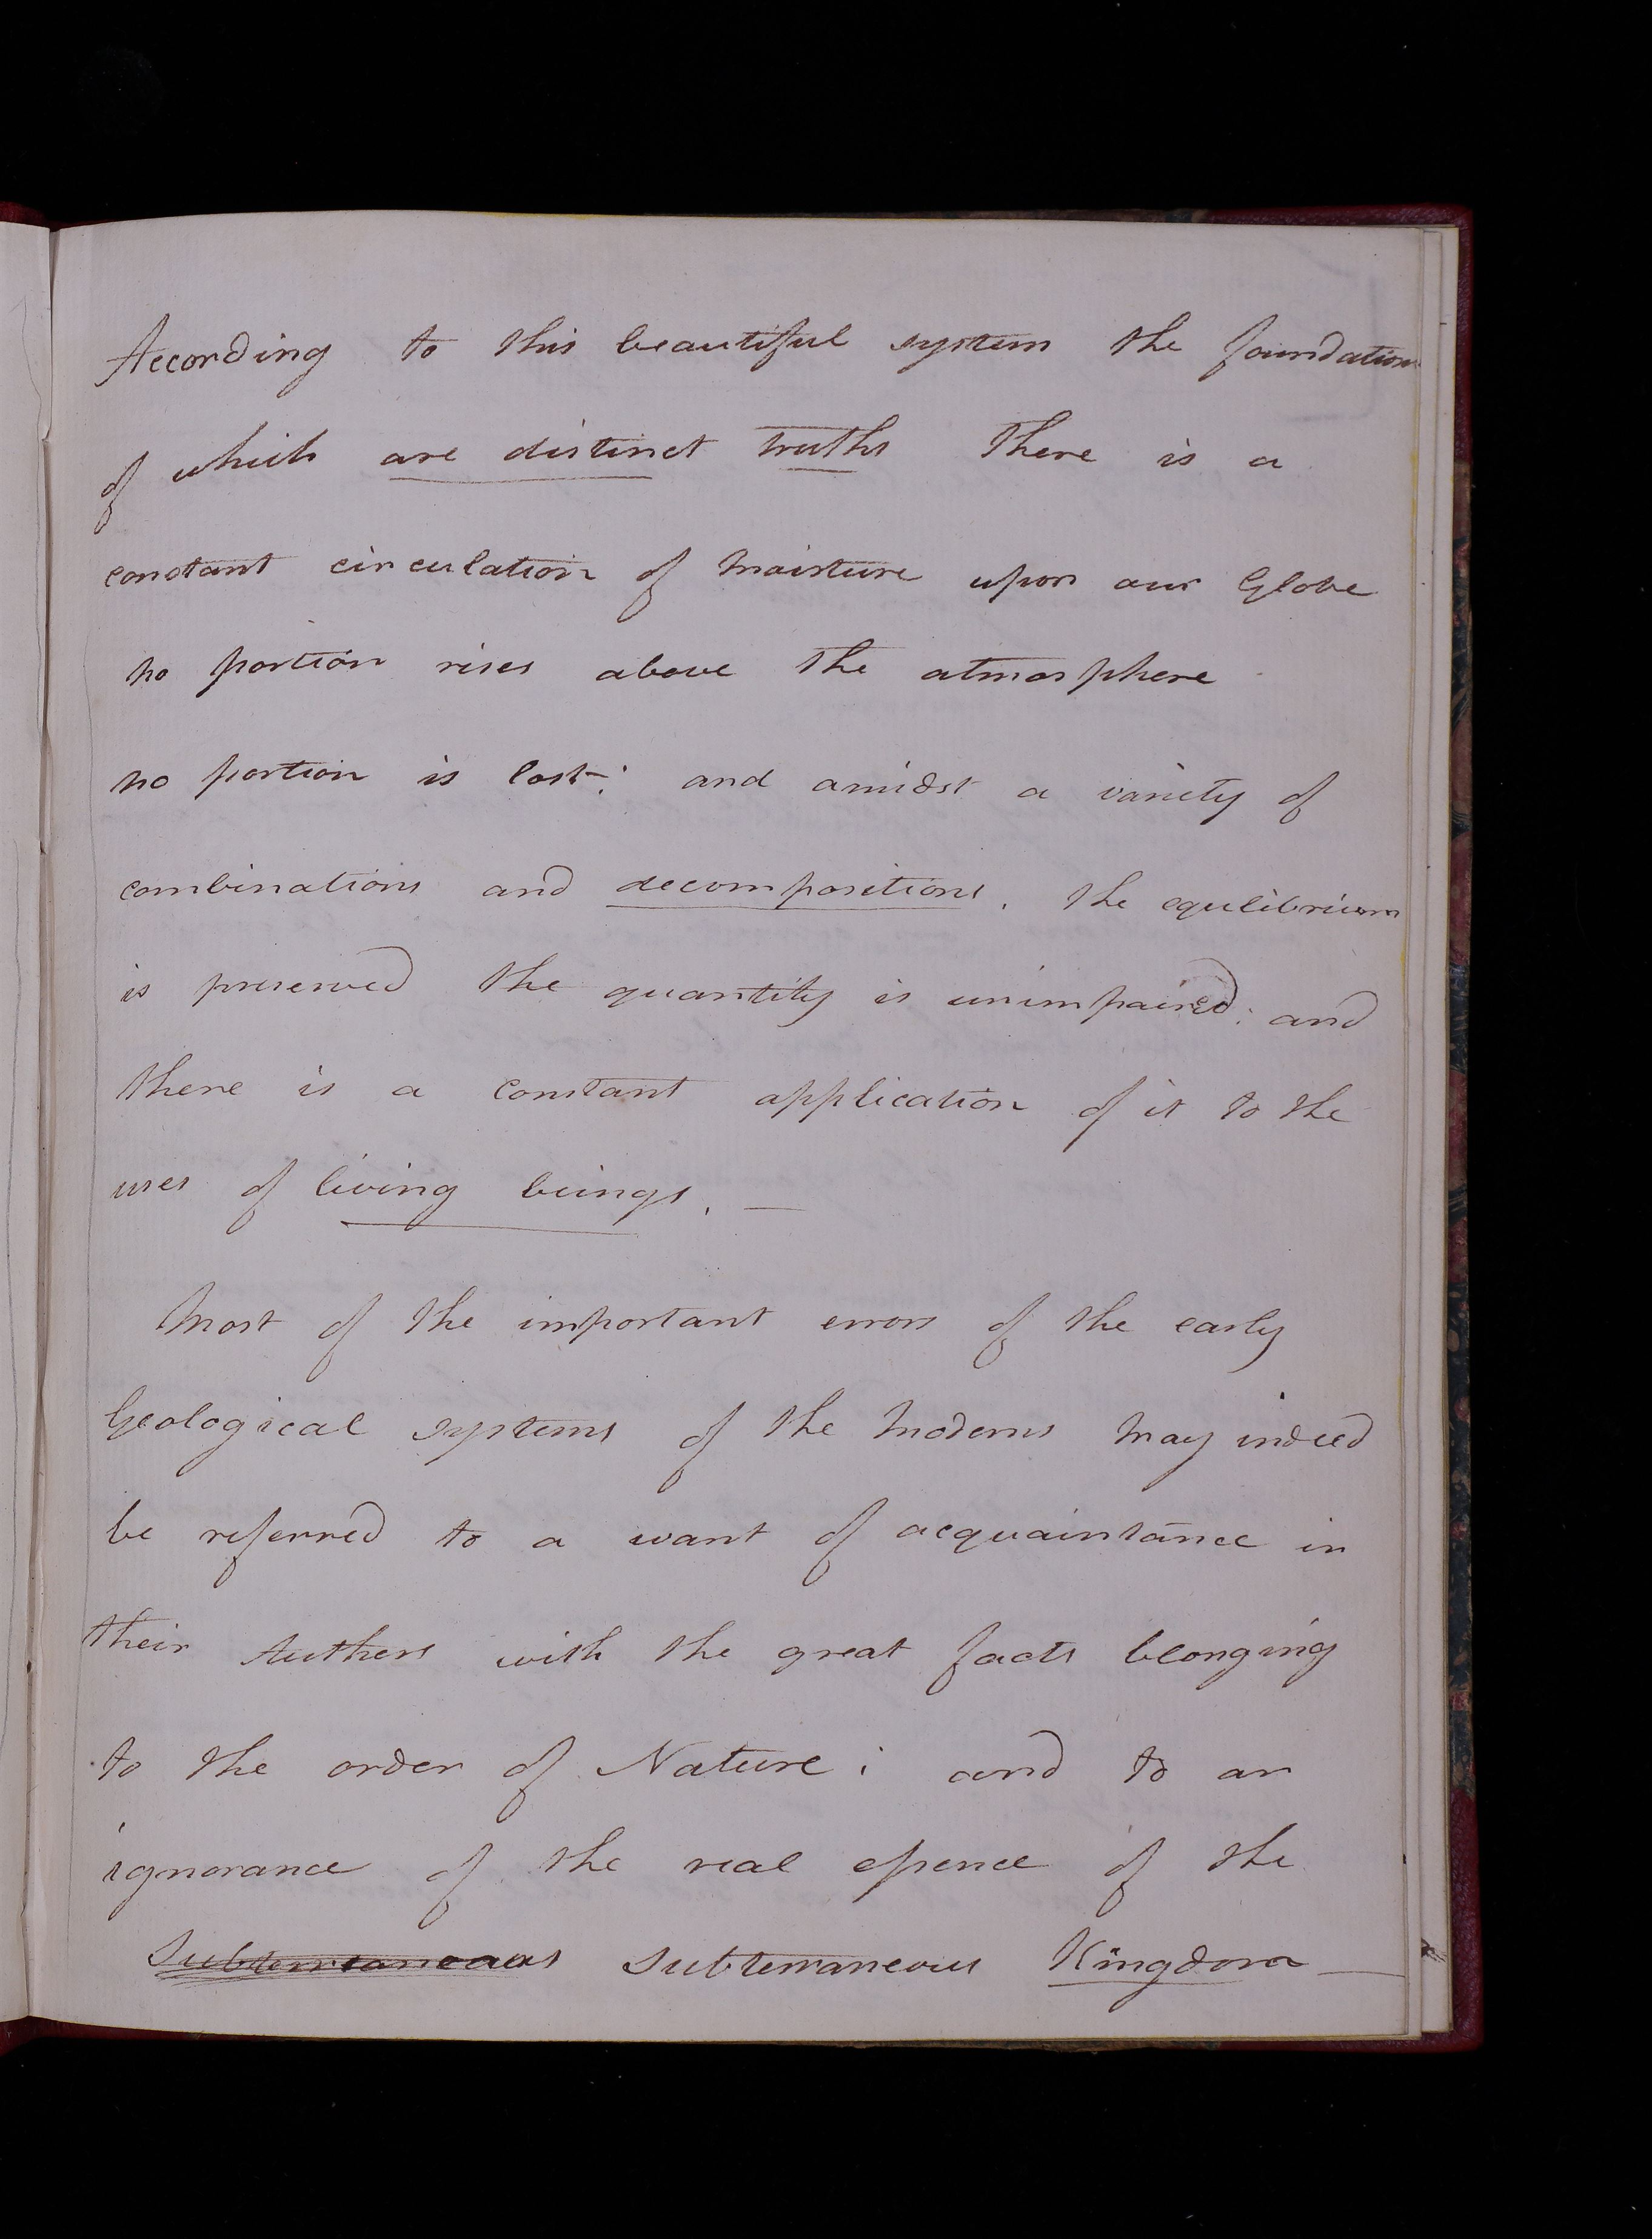 According to this beautiful system the foundations
of which are distinct truths There is a
constant circulation of moisture upon our Globe
no portion rises above the atmosphere
no portion is lost: and amidst a variety of
combinations and decompositions. The equlibrium
is preserved the quantity is unimpaired: and
there is a constant application of it to the
uses of living beings. —
Most of the important errors of the early
Geological systems of the Moderns may indeed
be referred to a want of acquaintance in
their Authors with the great facts blonging
to the order of Nature; and to an
ignorance of the real essence of the
Subterraneous Subterraneous Kingdom —